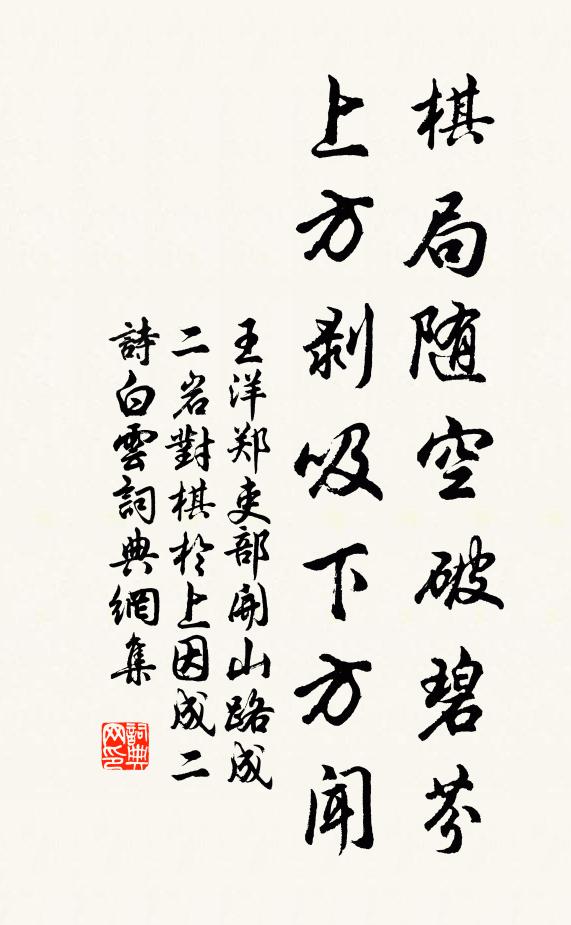 棋局随空破碧芬
上方剥吸下方闻
王洋郑吏部開山路成
二岩對棋於上因成二
詩白雲詞典網集
詞典
网印